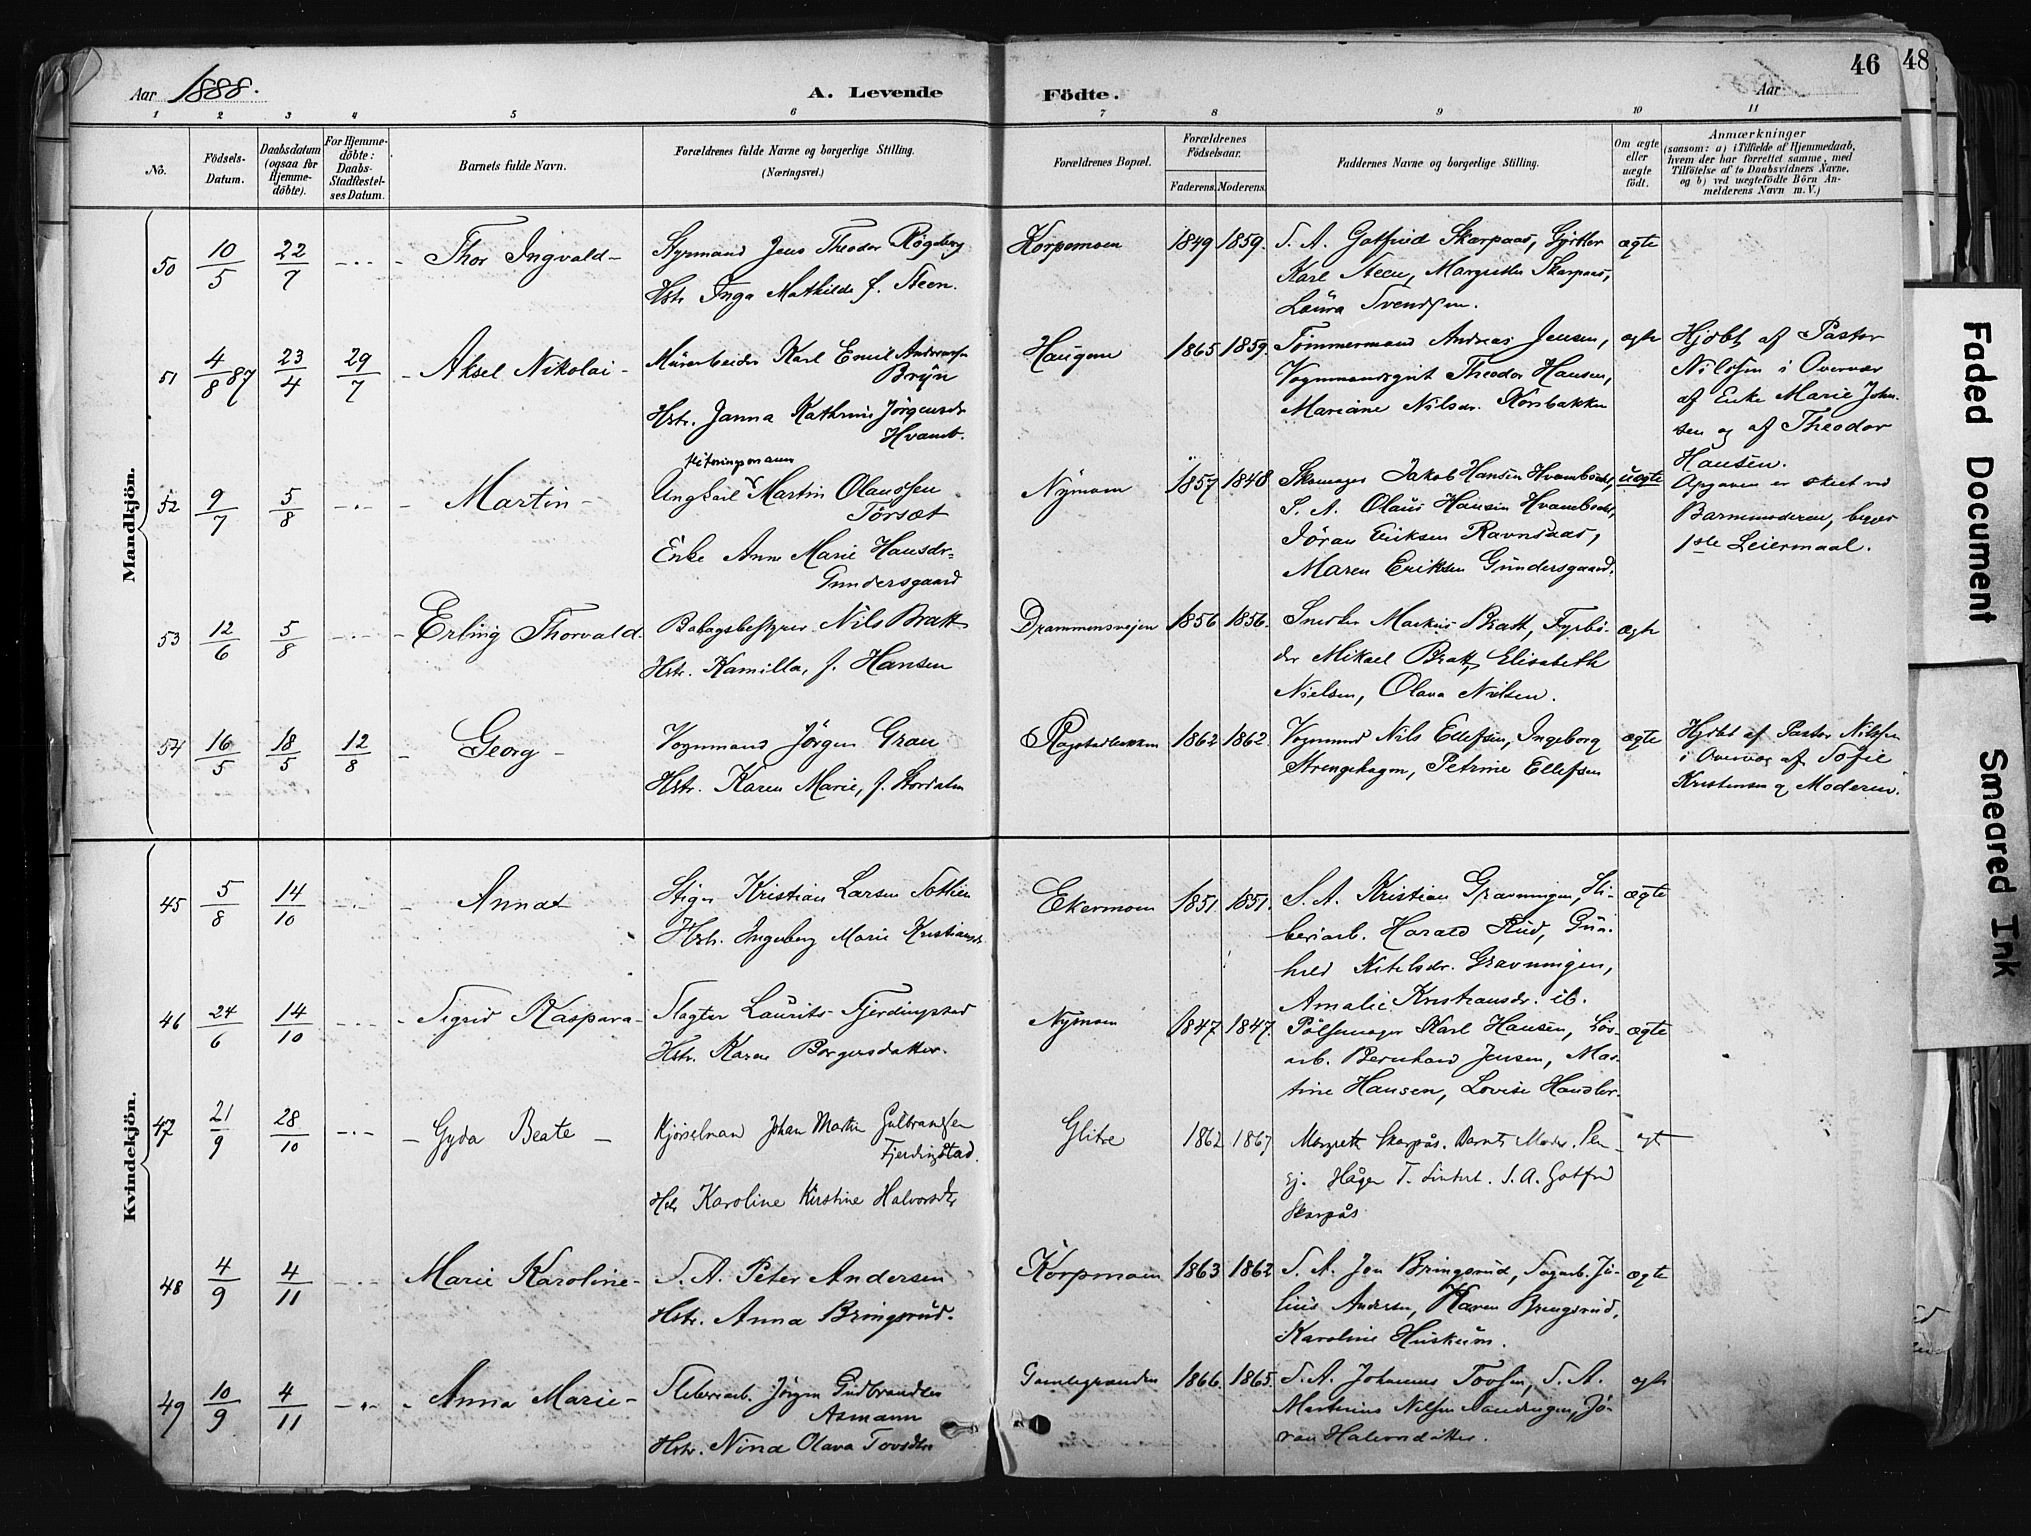 Aar 1888.
A. Levende Födte.
Aar
46
48
1 2 3 4 5 6 7 8 9 10 11
No.
Födsels-Datum.
Daabsdatum (ogsaa for Hjemme-döbte).
For Hjemme-döbte: Daabs-Stadfæstel-ses Datum.
Barnets fulde Navn.
Forældrenes fulde Navne og borgerlige Stilling. (Næringsvei.)
Forældrenes Bopæl.
Forældrenes Födselsaar.
Faderens. Moderens.
Faddernes Navne og borgerlige Stilling.
Om ægte eller uægte födt.
Anmærkninger
(saasom: a) i Tilfælde af Hjemmedaab,
hvem der har forrettet samme, med
Tilföielse af to Daabsvidners Navne,
og b) ved uægtefödte Börn An-
melderens Navn m. V.)
Mandkjön.
50 10/5 22/7 Thor Ingvald
Styrmand Jens Theodor Rögeberg
Hstr. Inga Mathilde f. Steen.
Korpomoen 1849 1859.
S. A. Gotfred Skarpaas, Gjörtler
Karl Steen, Margrethe Skarpaas,
Laura Svendsen.
ægte
51 4/8 87 23/4 29/7 Aksel Nikolai
Murarbeider Karl Emil Andreassen
Bryn
Hstr. Janna Kathrine Jörgensdr.
Hvamb.
Haugene 1865 1859.
Tömmermand Andreas Jensen,
Vognmandsgut Theodor Hansen,
Mariane Nilsdr. Korsbakken
ægte
Hjdbt af Pastor
Nilssen i Overvær
af Enke Marie John-
sen og af Theodor
Hansen.
52 9/7 5/8 Martin
Ungkarl Martin Olaussen
Törsæt
Enke Anne Marie Hansdr.
Gundersgaard
Nymoen 1857 1848
Skomager Jakob Hansen
S. A. Olaus Hansen
Jöran Eriksen Ravnsaas,
Maren Eriksen Gundersgaard.
uægte
Opgaven er skeet ved
Barnemoderen, begges
1ste Leiermaal.
53 12/6 5/8 Erling Thorvald
Nils Bratt
Hstr. Kamilla, f. Hansen
Drammensveien 1856 1856.
Snedker Markus Bratt, Fyrbö-
der Mikael Bratt, Elisabeth
Nielsen, Olava Nielsen.
ægte
54 16/5 18/5 12/8 Georg
Vognmand Jörgen Grau
Hstr. Karen Marie, f. Stordalen
Ragstadbakken 1862 1862.
Vognmand Nils Ellefsen, Ingeborg
Strengehagen, Petrine Ellefsen
ægte
Hjdbt af Pastor Nilssen
i Overvær af Sofie
Kristensen og Moderen.
Kvindekjön.
45 5/8 14/10 Anna
Stiger Kristian Larsen Sothien
Hstr. Ingeborg Marie Kristiansdr.
Ekermoen 1851 1851.
S. A. Kristian Gravningen, Sli-
beriarb. Harald Rud, Gun-
hild Kitilsdr. Gravningen,
Amalie Kristiansdr. ib.
ægte
46 24/6 14/10 Sigrid Kaspara
Slagter Laurits Fjerdingstad
Hstr. Karen Borgersdatter.
Nymoen 1847 1847.
Pölsemager Karl Hansen, Lös-
arb. Bernhard Jensen, Mar-
tine Hansen, Lovise
ægte
47 21/9 28/10 Gyda Beate
Kjörselman Johan Martin Gulbrandsen
Fjerdingstad.
Hstr Karoline Kirstine Halvorsdtr
Glitre 1862 1867
Margrethe Skarpås. Barnets Moder.
S. A. Gotfred
Skarpås
ægt
48 4/9 4/11 Marie Karoline
S. A. Peter Andersen
Hstr. Anna Bringsrud.
Korpmoen 1863 1862
S. A. Jon Bringsrud, Sagarb. Ju-
lius Andersen, Karen Bringsrud,
Karoline Huskum.
ægte
49 10/9 4/11 Anna Marie
Sliberiarb. Jörgen Gudbrandsen
Asmann
Hstr. Nina Olava Tovsdtr
Gamlegrænden 1866. 1865.
S. A. Johannes Tovsen, S. A.
Martinius Nilsen Jö-
ran Halvorsdatter.
ægte
Faded Document
Smeared Ink